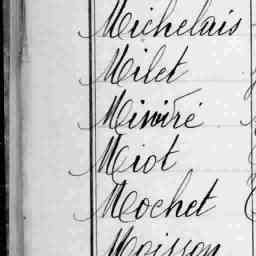 Michelais
Milet
Miniré
Miot
Mochet
Moisson